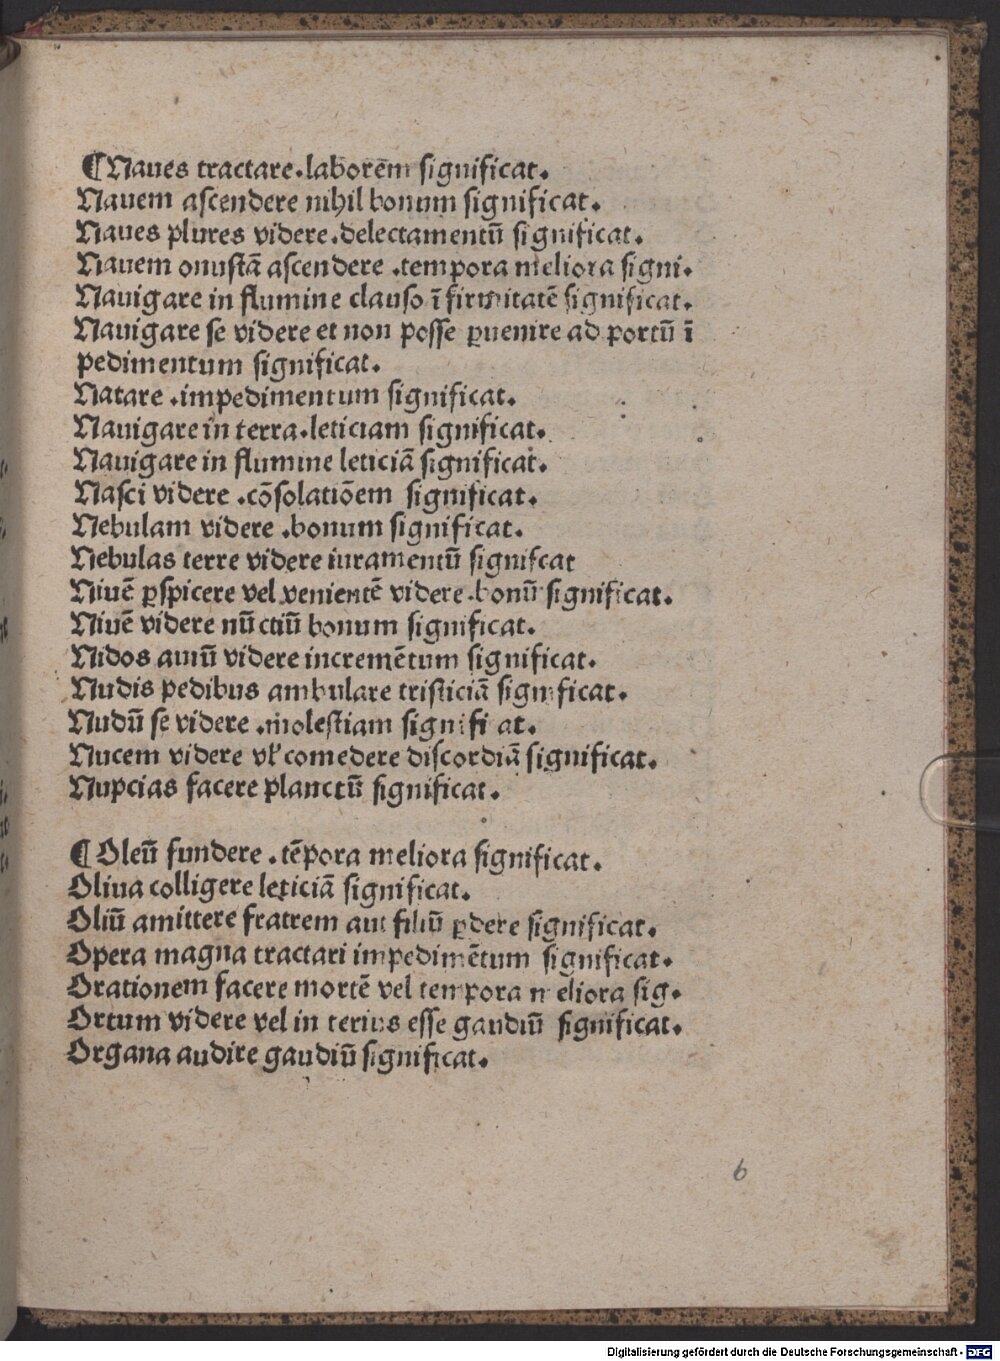 ¶ Naues tractare .laborēm significat.
Nauem ascendere nihil bonum significat.
Naues plures videre .delectamentū significat.
Nauem onustā ascendere .tempora meliora signi.
Nauigare in flumine clauso īfirmitatē significat.
Nauigare se videre et non posse ꝑuenire ad portū ī
pedimentum significat.
Natare .impedimentum significat.
Nauigare in terra .leticiam significat.
Nauigare in flumine leticiā significat.
Nasci videre .cōsolatiōem significat.
Nebulam videre .bonum significat.
Nebulas terre videre iuramentū signifcat
Niuē ꝑspicere vel venientē videre .bonū significat.
Niuē videre nū ctiū bonum significat.
Nidos auiū videre incremētum significat.
Nudis pedibus ambulare tristiciā significat.
Nudū se videre .molestiam signifi at.
Nucem videre vl' comedere discordiā significat.
Nupcias facere planctū significat.
¶ Oleū fundere .tēpora meliora significat.
Oliua colligere leticiā significat.
Oliū amittere fratrem aut filiū ꝑdere significat.
Opera magna tractari impedimētum significat.
Orationem facere mortē vel tempora meliora sig.
Ortum videre vel in terius esse gaudiū significat.
Organa audire gaudiū significat.
6
Digitalisierung gefördert durch die Deutsche Forschungsgemeinschaft - DFG